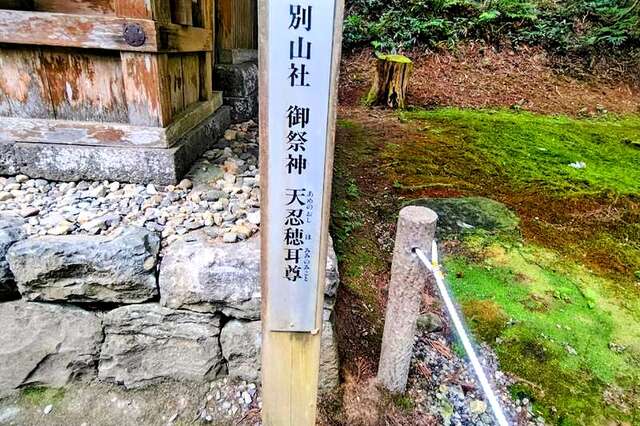 別山社 御祭神 天忍穂耳尊
あめのおし ほ みみのみこと